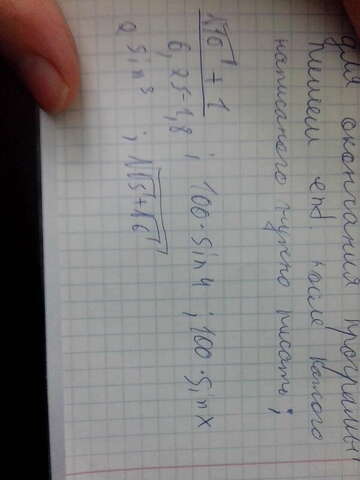 для окончания програмы
пишем end. после каждого
написаного нужно писать ;
√16 + 1
6,25-1,8 ; 100·sin 4 ; 100·sin x
2 sin³ ; √√15+√6